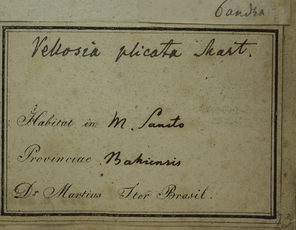 Vellosia plicata Mart.
Habitat in M. Sancto
Provinciae Bahiensis
Dr Martius Iter Brasil.